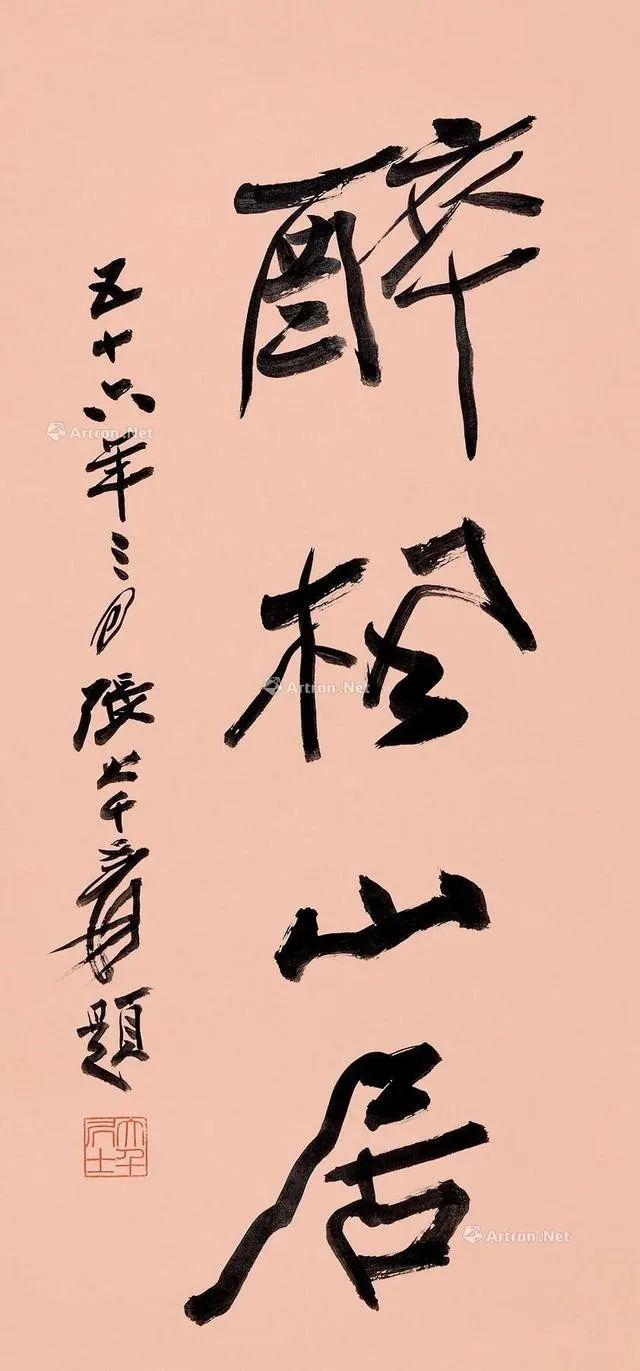 醉松山居
五十六年三月張大千爰題
大千居士
Artron.Net
Artron.Net
Artron.Net